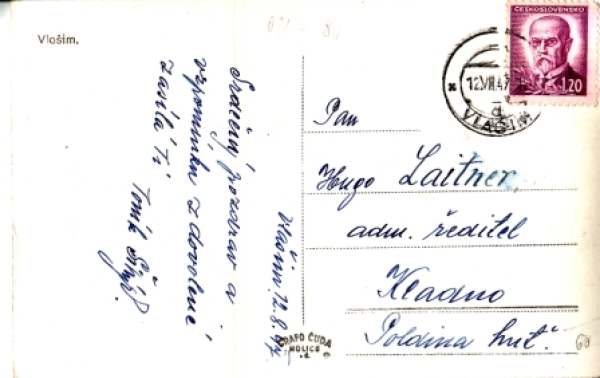 Vlašim.
Srdečný pozdrav a
vzpomínku z dovolené
zasílá Ti
Tonik
Vlašim 12.8.47.
GRAFO ČUDA
HOLICE
ČESKOSLOVENSKO
1.20
12.VIII.47
d
VLAŠIM
Pan
Hugo Laitner,
adm. ředitel
Kladno
Poldina huť.